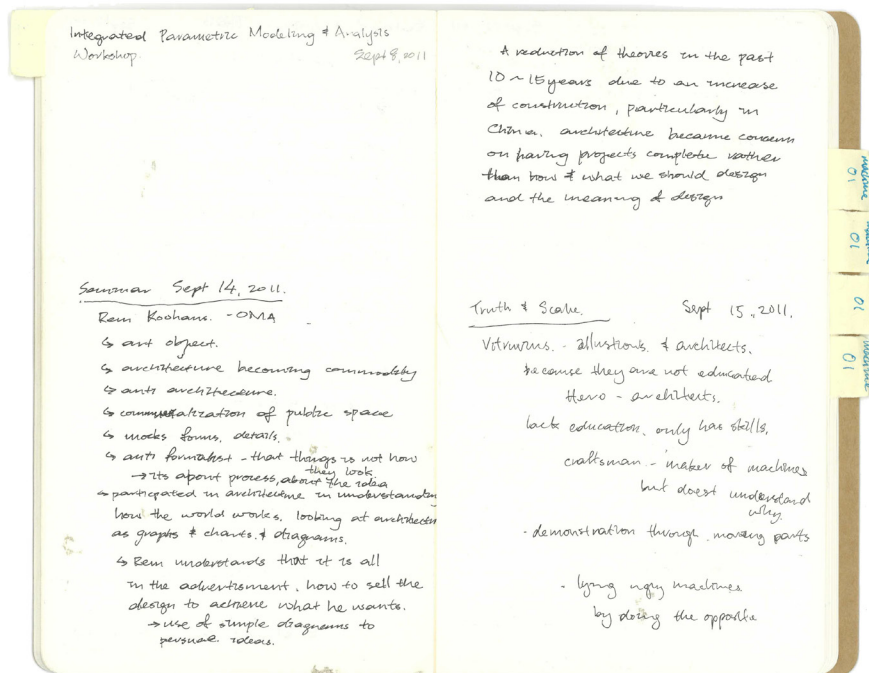 Integrated Parametric Modeling & Analysis
Workshop. Sept 8, 2011
Seminar Sept 14, 2011.
Rem Koohaus. - OMA
↳ art object.
↳ architecture becoming commodity
↳ anti architecture.
↳ of public space
↳ mocks forms, details.
↳ anti formalist - that things is not how
they look
→ its about process, about the idea
↳ participated in architecture in understanding
how the world works, looking at architecture
as graphs & charts, & diagrams.
↳ Rem understands that it is all
in the advertisment, how to sell the
design to achieve what he wants.
→ use of simple diagrams to
ideas.
A reduction of theories in the past
10 ~ 15 years due to an increase
of construction, particularly in
China. architecture became concern
on having projects complete rather
than how & what we should design
and the meaning of design
Truth & Scale. Sept 15, 2011.
Vitruvius. - & architects.
because they are not educated
Hero - architects.
lack education, only has skills,
craftsman - maker of machines
but doest understand
why.
- demonstration through moving parts
- lying machines
by doing the opposite
volume
01
01
01
01